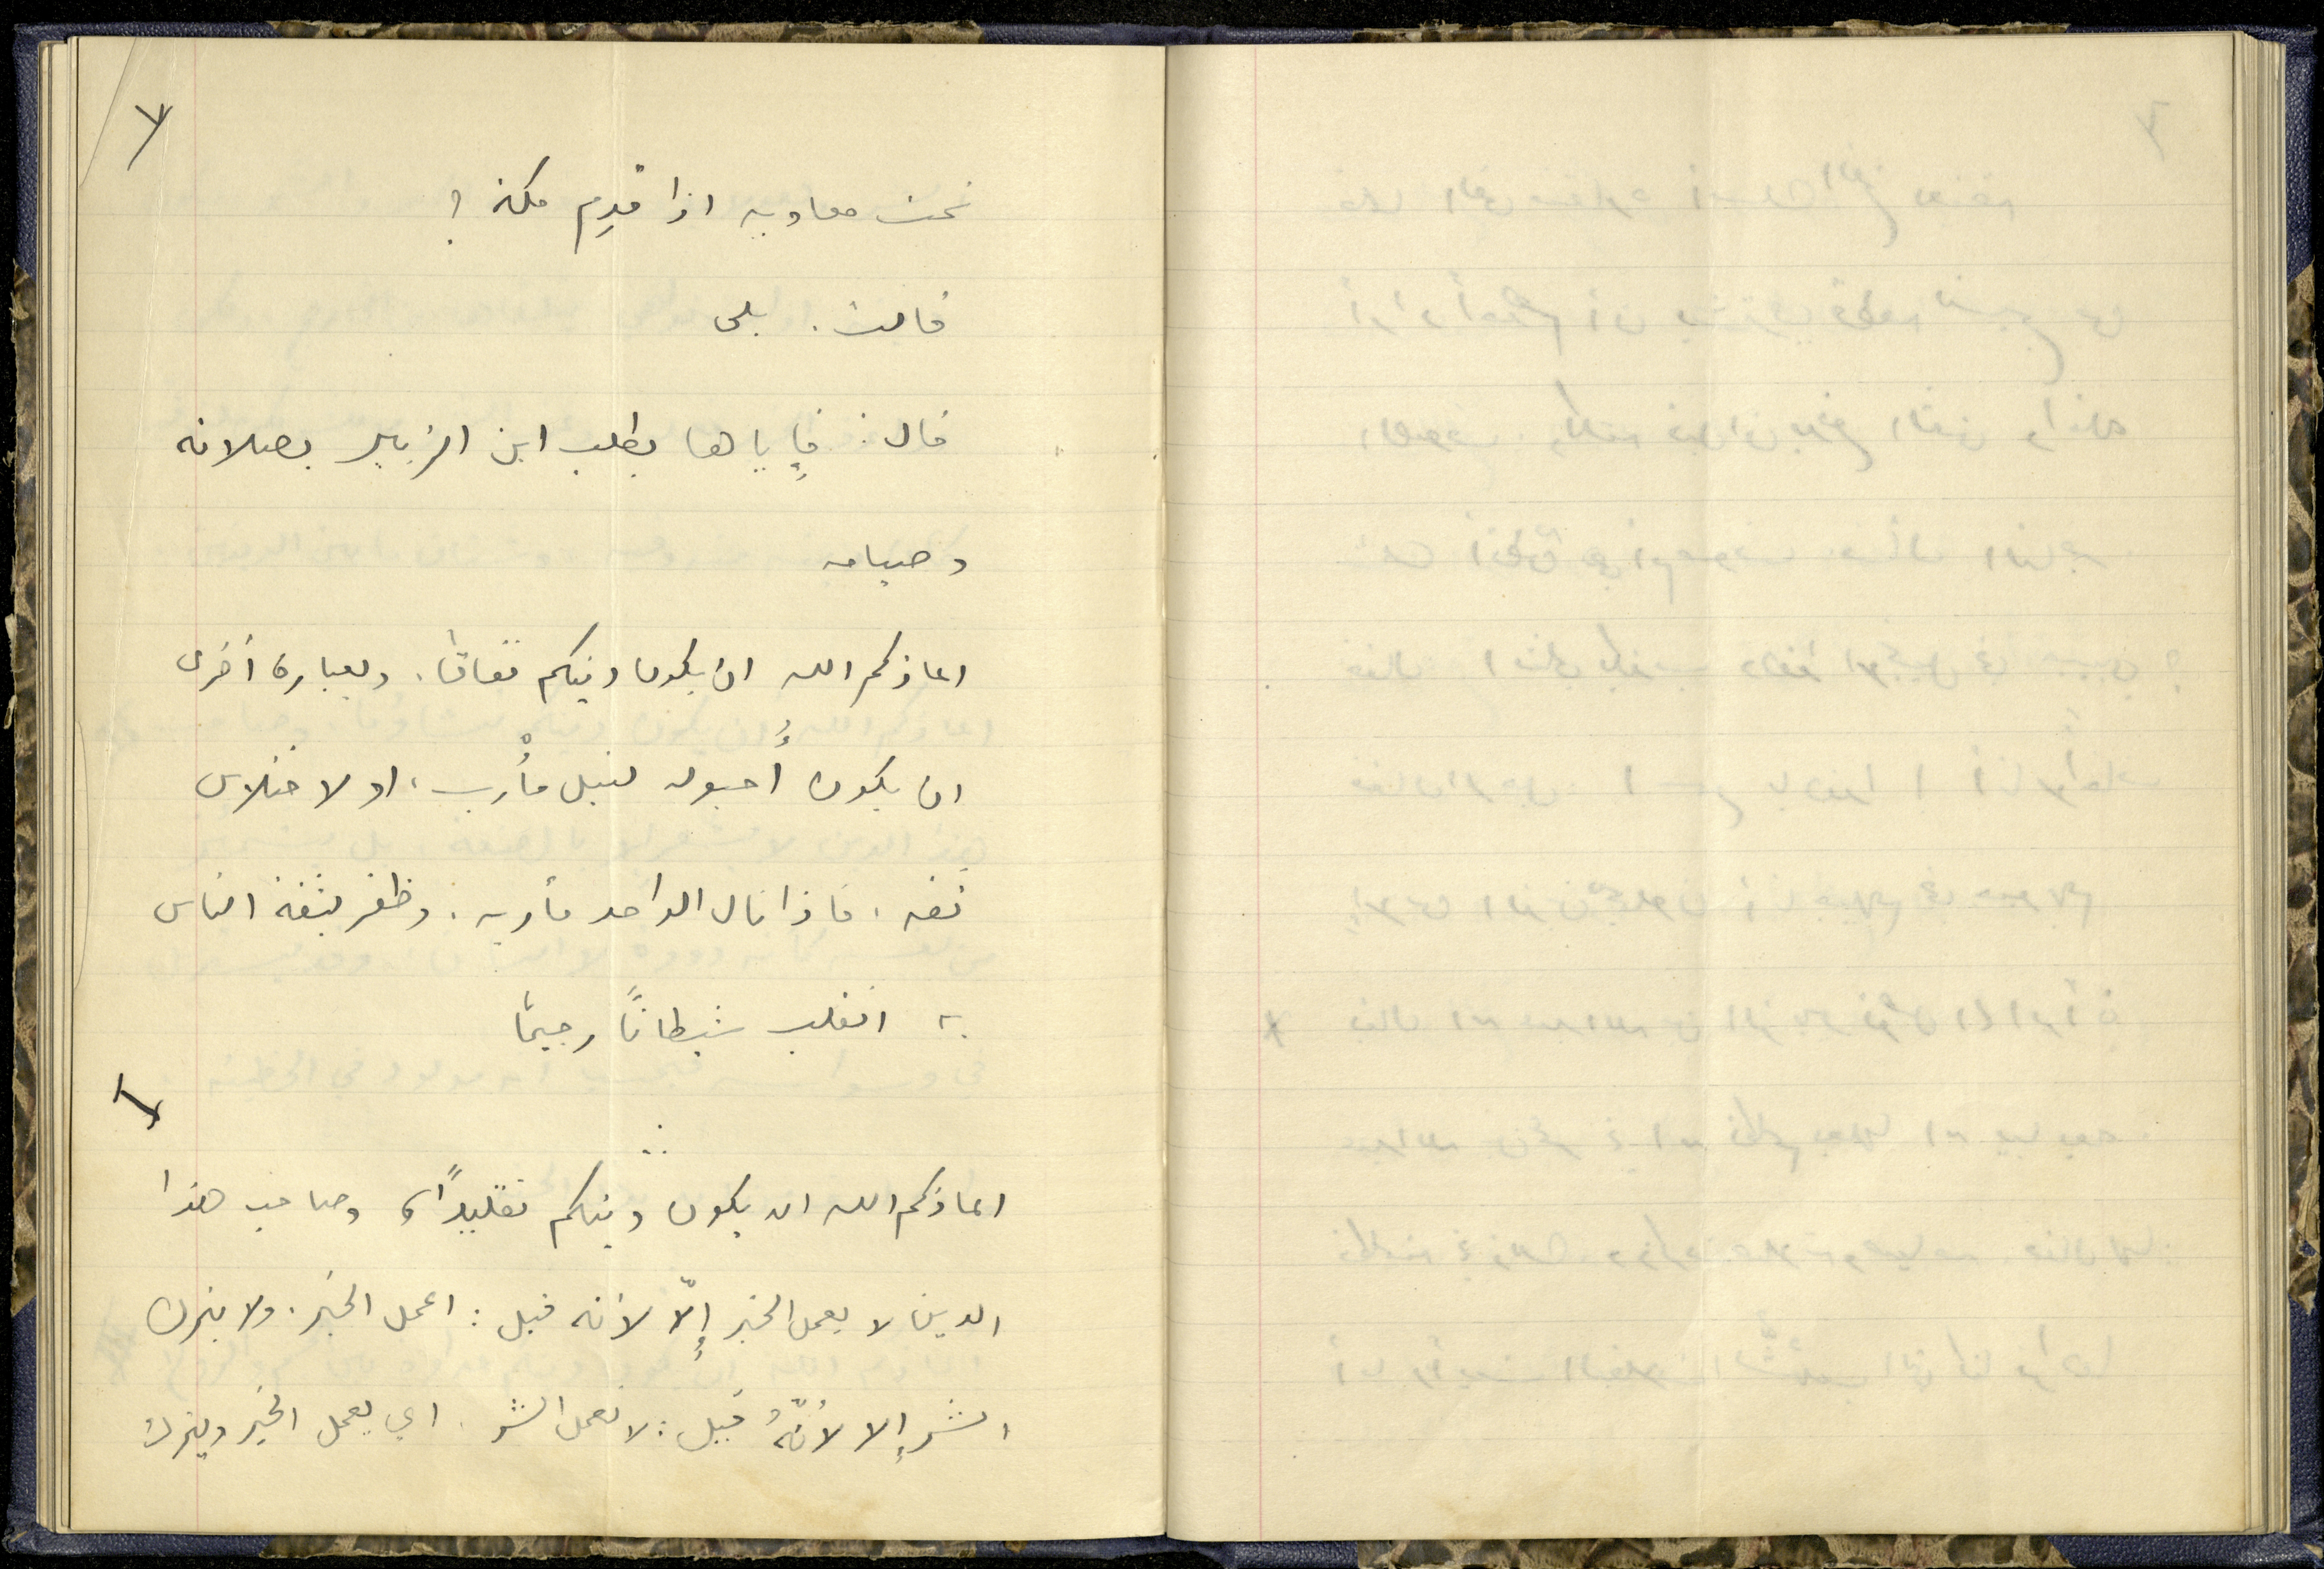 ٧
تحت معاوية اذا قدِم مكة ؟
قالت . بلى
قال : فإياها يطلب ابن الزبير بصلاته
وصيامه
اعاذكم الله ان يكون دينكم نفاقًا . وبعبارة أخرى
ان يكون أحبولة لنيل مأْرب ، او لاختلاس
ثقة ، فاذا نال الواحد مأربه . وظفر بثقة الناس
به انقلب شيطانًا رجيمًا
اعاذكم الله ان يكون دينكم تقليدًا ، وصاحب هذا
الدين لا يعمل الخير إلّا لأنه قيل : اعمل الخير . ولا يترك
الشر إلا لأنّهُ قيل : لا تعمل الشر . اي يعمل الخير ويترك